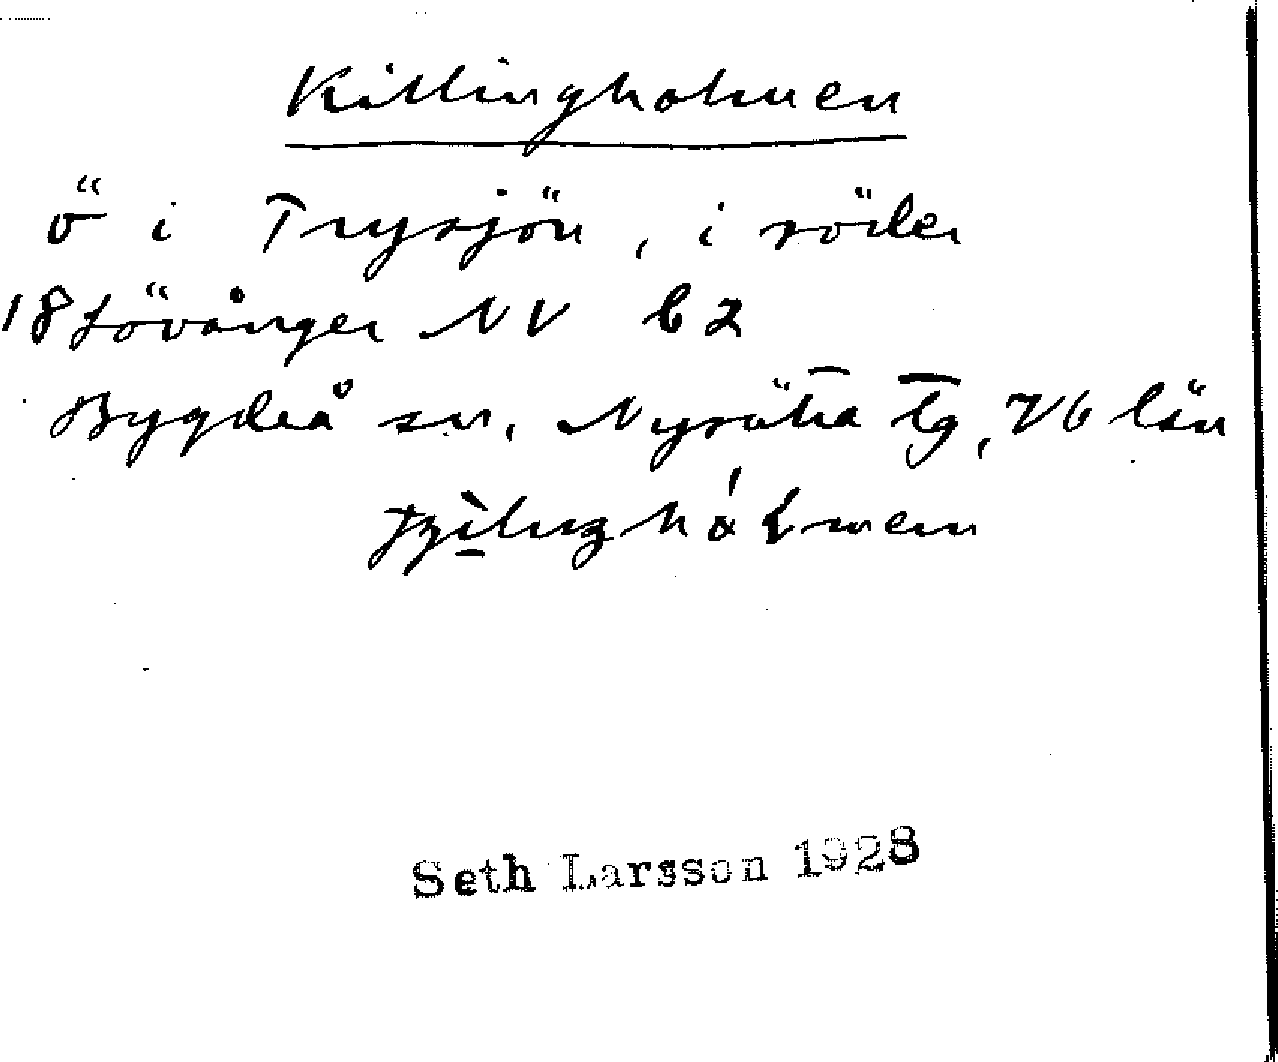 Killingholmen
ö i Trysjön, i söder
18 Lövånger NV b2
Bygdeå sn, Nysätra tg, Vb län
Seth Larsson 1928